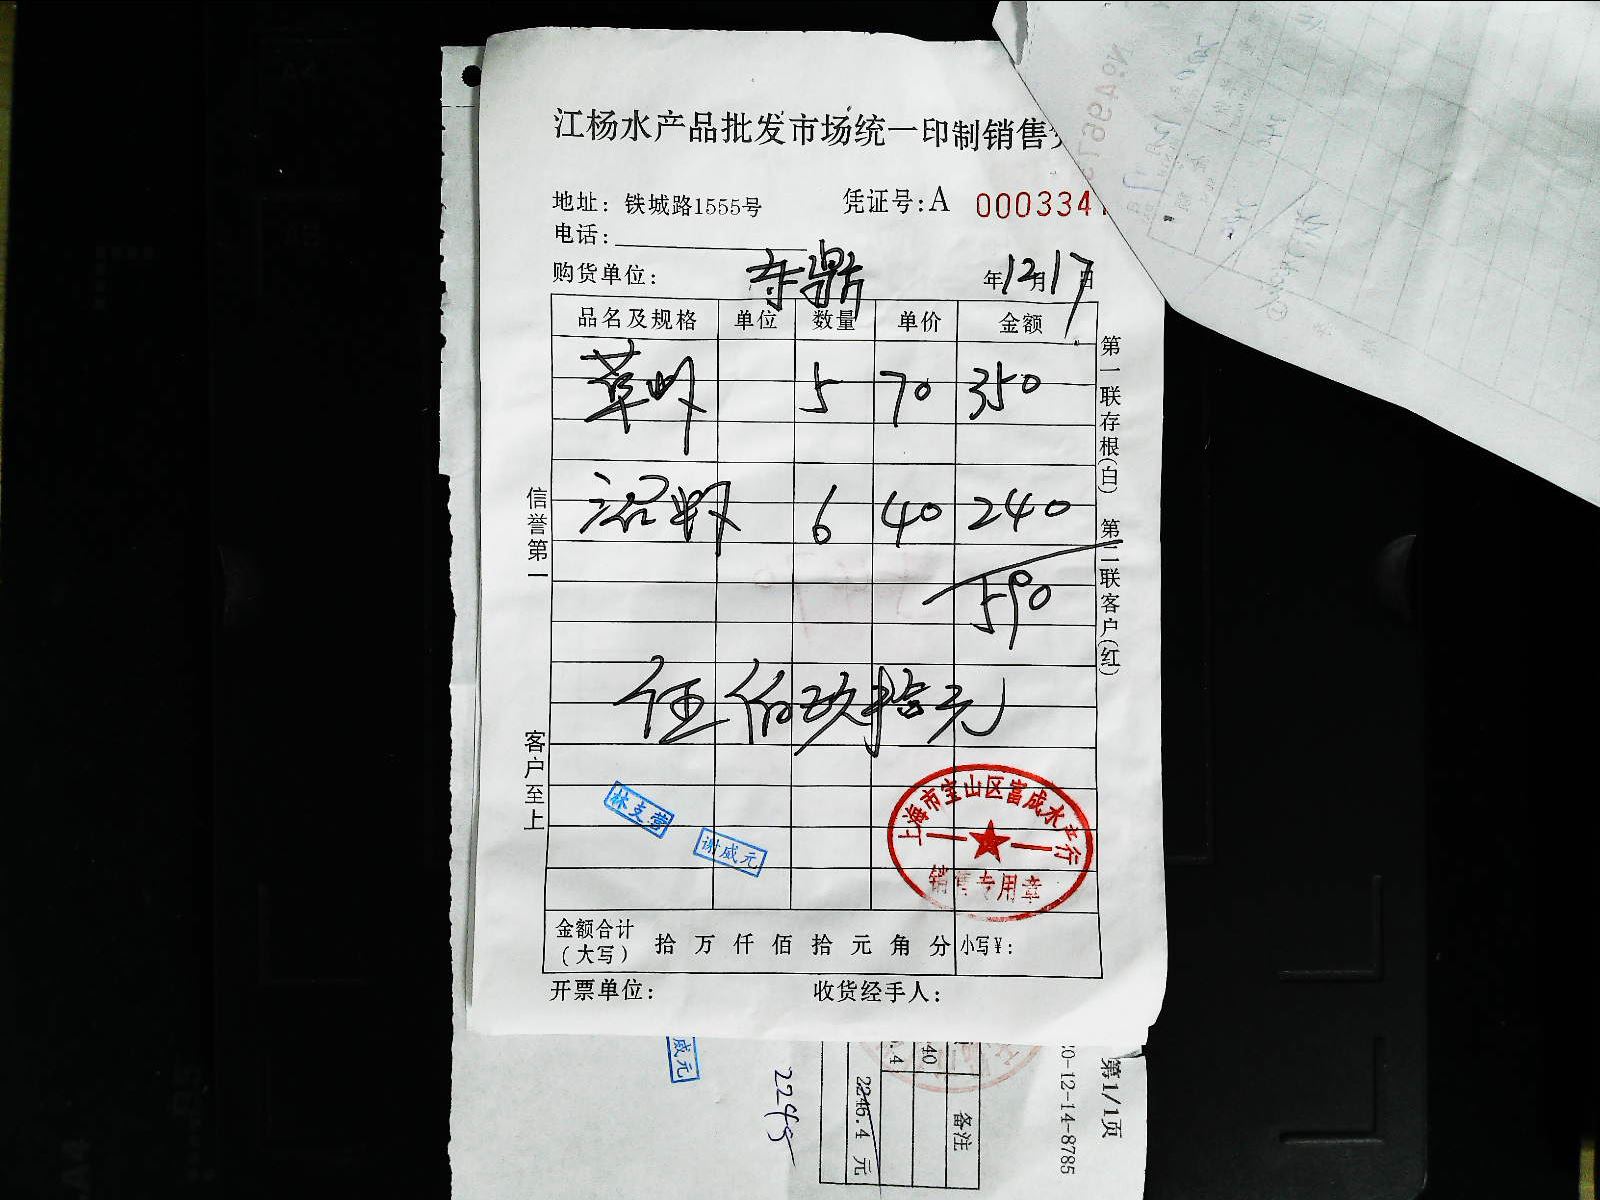 江杨水产品批发市场统一印制销售
地址：铁城路1555号
凭证号：A 000334
电话：
购货单位：
年12月17日
品名及规格 单位 数量 单价 金额
草虾 5 70 350
沼虾 6 40 240
590
伍佰玖拾元
信誉第一
客户至上
第一联存根(白) 第二联客户(红)
林支营
谢威元
上海市宝山区富成水产行
销售专用章
金额合计（大写） 拾 万 仟 佰 拾 元 角 分 小写¥：
开票单位： 收货经手人：
威元
2245
2246.4 元
40
.4
备注
第1/1页
20-12-14-8785